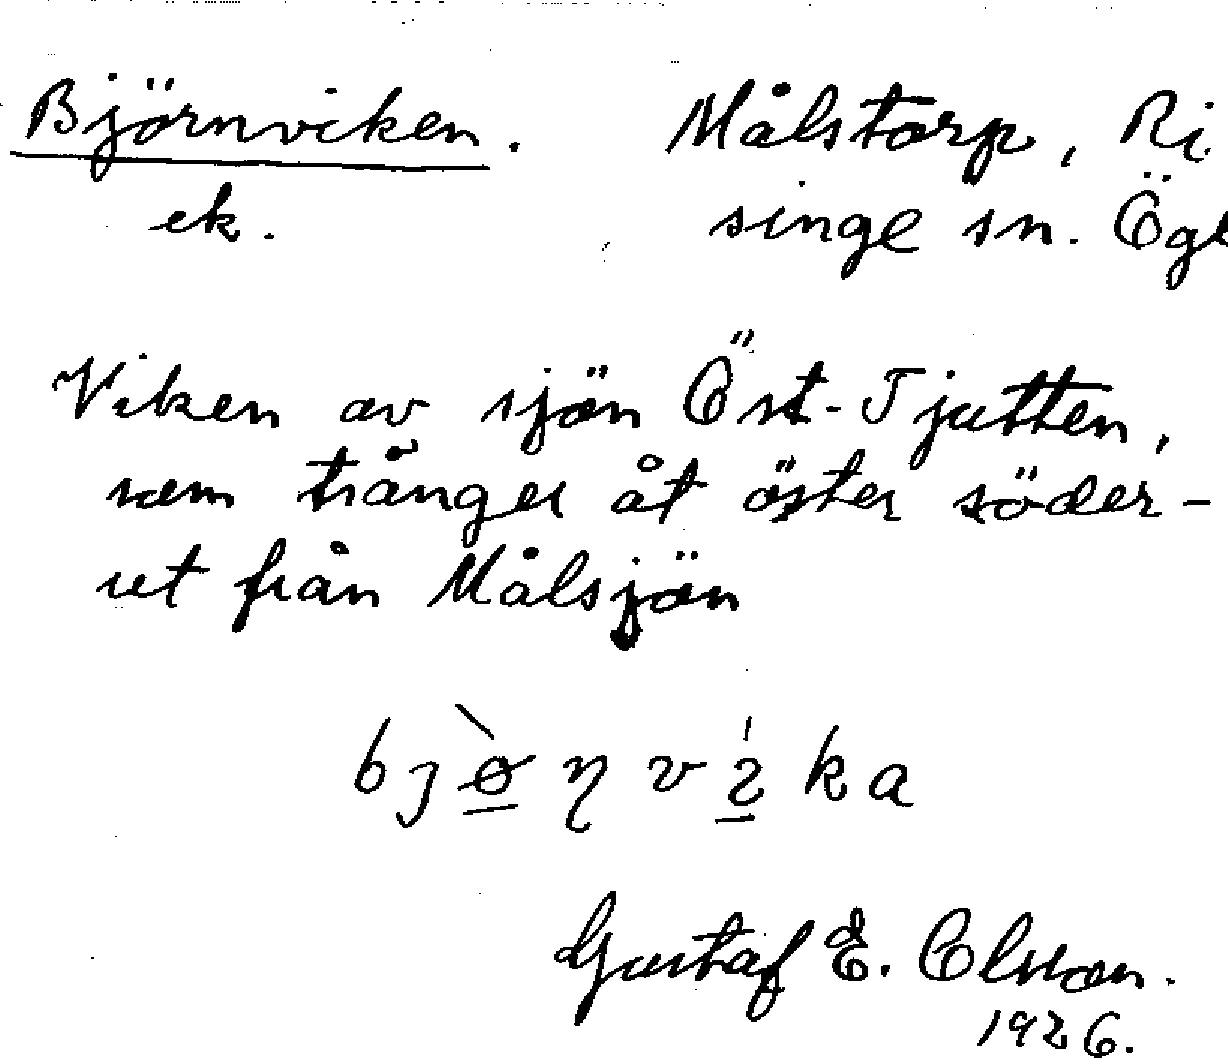 Björnviken. Målstorp, Ri
ek. singe sn. Ögl
Viken av sjön Öst-Tjutten,
som tränger åt öster söder-
ut från Målsjön
Gustaf E. Olsson.
1926.